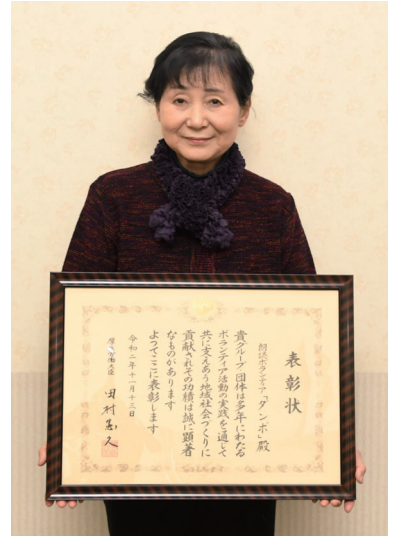 表彰状
朗読ボランティア「タンポポ」殿
貴グループ・団体は多年にわたる
ボランティア活動の実践を通して
共に支えあう地域社会づくりに
貢献されその功績は誠に顕著
なものがあります
よってここに表彰します
令和二年十一月十三日
厚生労働大臣 田村憲久